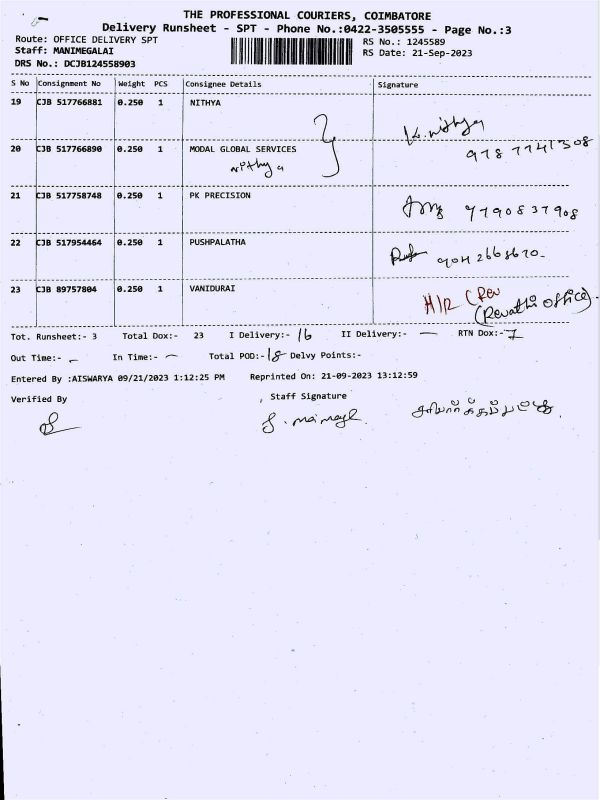 THE PROFESSIONAL COURIERS, COIMBATORE
Delivery Runsheet - SPT - Phone No.:0422-3505555 - Page No.:3
Route: OFFICE DELIVERY SPT
RS No.: 1245589
Staff: MANIMEGALAI
RS Date: 21-Sep-2023
DRS No.: DCJB124558903
S No Consignment No Weight PCS Consignee Details Signature
19 CJB 517766881 0.250 1 NITHYA K. nithya
20 CJB 517766890 0.250 1 MODAL GLOBAL SERVICES 9787741308
nithya
21 CJB 517758748 0.250 1 PK PRECISION 7790837908
22 CJB 517954464 0.250 1 PUSHPALATHA
23 CJB 89757804 0.250 1 VANIDURAI H/R (Rev
(Revathi office).
Tot. Runsheet:- 3 Total Dox:- 23 I Delivery:- 16 II Delivery:- — RTN Dox:- 7
Out Time:- - In Time:- - Total POD:- 18 Delvy Points:-
Entered By :AISWARYA 09/21/2023 1:12:25 PM Reprinted On: 21-09-2023 13:12:59
Verified By Staff Signature
சரிபார்க்கப்பட்டது.